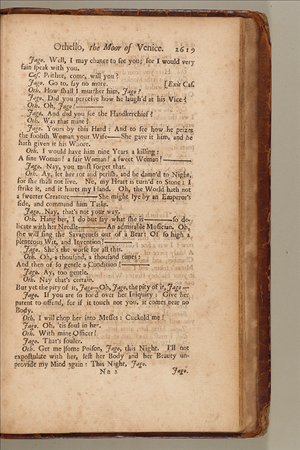 Othello, the Moor of Venice. 2619
Jago. Well, I may chance to see you; for I would very
fain speak with you.
Cas. Prithee, come, will you?
Jago. Go to, say no more. [Exit Cas.
Oth. How shall I murther him, Jago?
Jago. Did you perceive how he laugh'd at his Vice?
Oth. Oh, Jago!
Jago. And did you see the Handkerchief?
Oth. Was that mine?
Jago. Yours by this Hand: And to see how he prizes
the foolish Woman your Wife—She gave it him, and he
hath given it his Whore.
Oth. I would have him nine Years a killing:
A fine Woman! a fair Woman! a sweet Woman!
Jago. Nay, you must forget that.
Oth. Ay, let her rot and perish, and be damn'd to Night,
for she shall not live. No, my Heart is turn'd to Stone; I
strike it, and it hurts my Hand. Oh, the World hath not
a sweeter Creature—She might lye by an Emperor's
side, and command him Tasks.
Jago. Nay, that's not your way.
Oth. Hang her, I do but say what she is—so de-
licate with her Needle—An admirable Musician. Oh,
she will sing the Savageness out of a Bear! Of so high a
plenteous Wit, and Invention!
Jago. She's the worse for all this.
Oth. Oh, a thousand, a thousand times:
And then of so gentle a Condition!
Jago. Ay, too gentle.
Oth. Nay that's certain.
But yet the pity of it, Jago—Oh, Jago, the pity of it, Jago—
Jago. If you are so fond over her Iniquity: Give her
patent to offend, for if it touch not you, it comes near no
Body.
Oth. I will chop her into Messes: Cuckold me!
Jago. Oh, 'tis foul in her.
Oth. With mine Officer!
Jago. That's fouler.
Oth. Get me some Poison, Jago, this Night. I'll not
expostulate with her, lest her Body and her Beauty un-
provide my Mind again: This Night, Jago.
Jago.